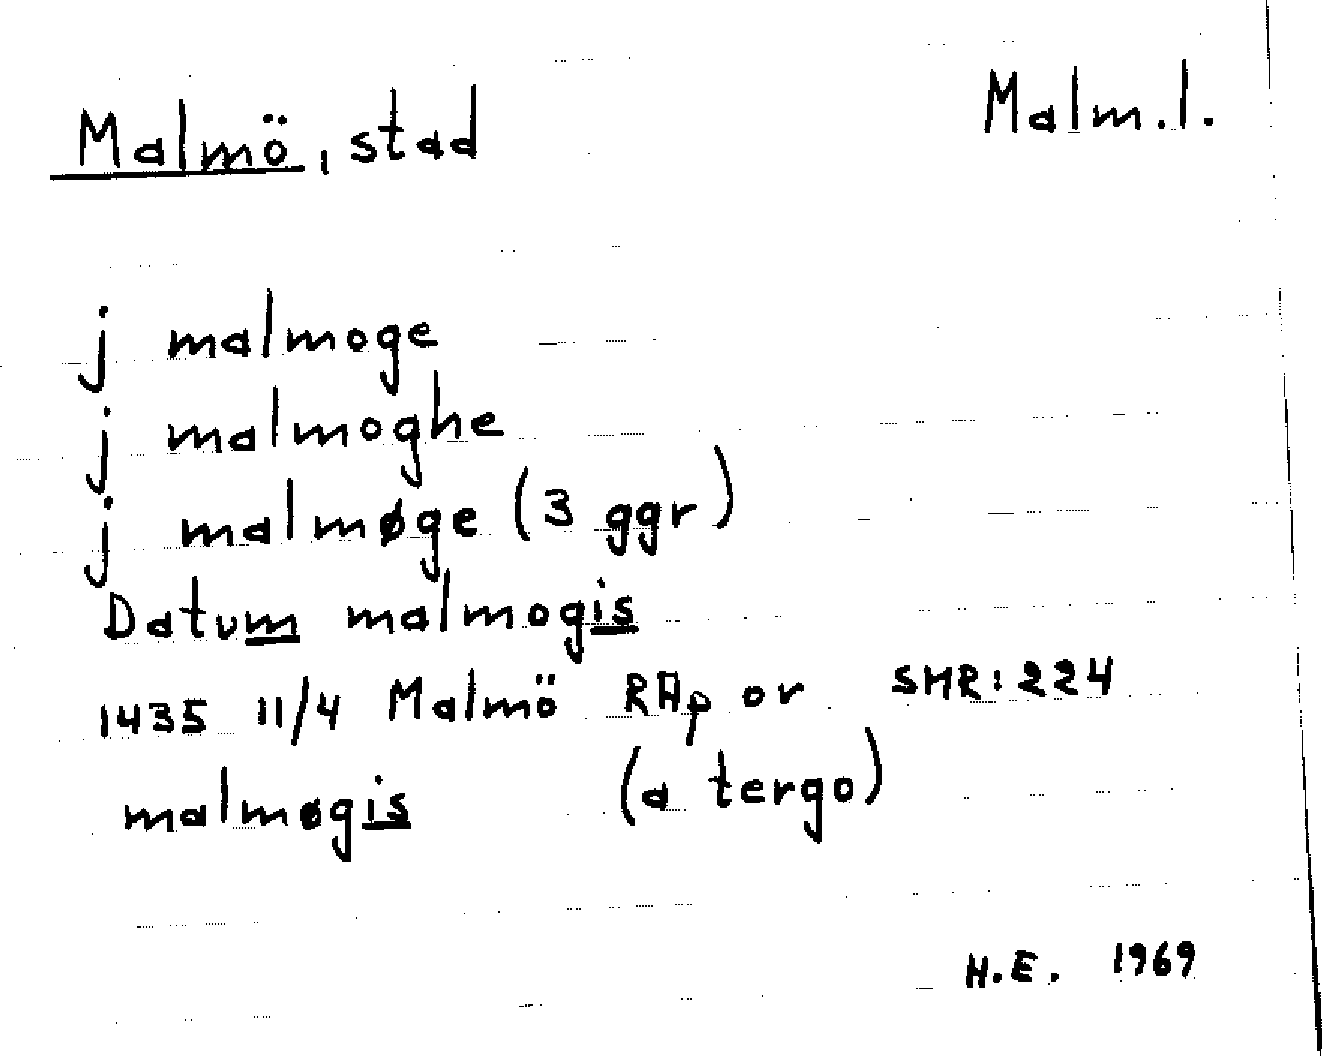 Malmö, stad Malm.l.
j malmoge
j malmoghe
j malmøge (3 ggr)
Datum malmogis
1435 11/4 Malmö RAp or SMR:224
malmøgis (a tergo)
H.E. 1969